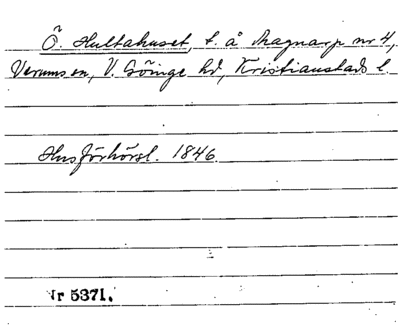 Ö. Hultahuset, t. å Magnarp nr 4,
Verums sn, V. Göinge hd, Kristianstads l.
Husförhörsl. 1846.
Nr 5371.